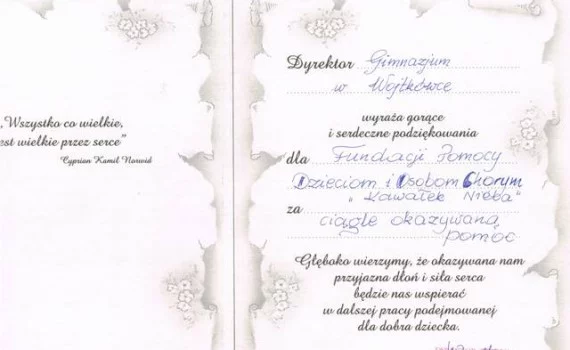 „Wszystko co wielkie,
est wielkie przez serce”
Cyprian Kamil Norwid
Dyrektor Gimnazjum
w Wojtkówce
wyraża gorące
i serdeczne podziękowania
dla Fundacji Pomocy
Dzieciom i Osobom Chorym
"Kawałek Nieba"
za ciągle okazywaną
pomóc
Głęboko wierzymy, że okazywana nam
przyjazna dłoń i siła serca
będzie nas wspierać
w dalszej pracy podejmowanej
dla dobra dziecka.